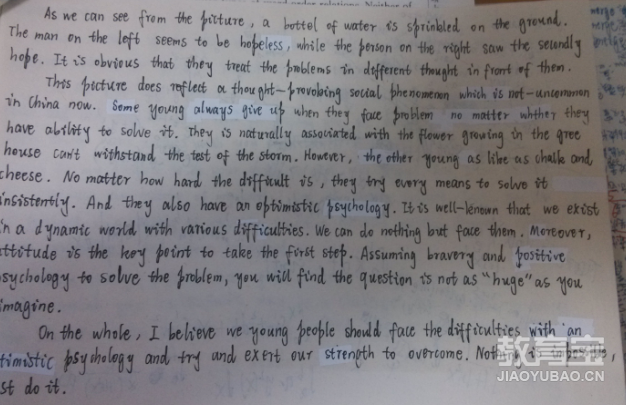 As we can see from the picture, a bottel of water is sprinkled on the ground.
The man on the left seems to be hopeless, while the person on the right saw the secondly
hope. It is obvious that they treat the problems in different thought in front of them.
This picture does reflect a thought-provobing social phenomenon which is not-uncommon
in China now. Some young always give up when they face problem no matter whther they
have ability to solve it. They is naturally associated with the flower growing in the gree
house can't withstand the test of the storm. However, the other young as like as chalk and
cheese. No matter how hard the difficult is, they try every means to solve it
insistently. And they also have an optimistic psychology. It is well-known that we exist
in a dynamic world with various difficulties. We can do nothing but face them. Moreover,
attitude is the key point to take the first step. Assuming bravery and positive
psychology to solve the problem, you will find the question is not as "huge" as you
imagine.
On the whole, I believe we young people should face the difficulties with an
timistic psychology and try and exert our strength to overcome. Nothing is impossible,
st do it.
教育宝
JIAOYUBAO.CN